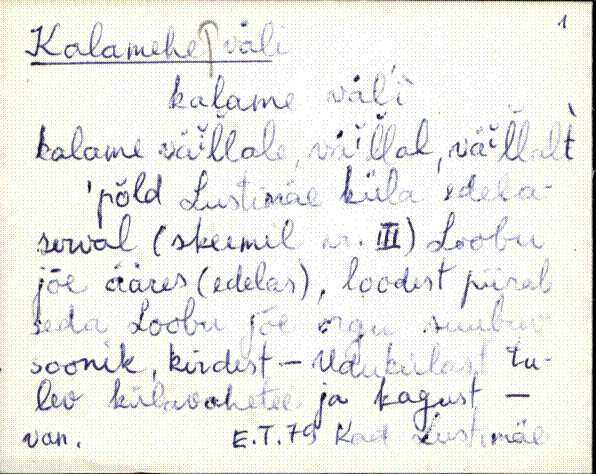 1
Kalamehe väli
kalame väl'i
kalame väĭl̆l̆ale, väĭl̆l̆al, väĭl̆l̆alt̀
'põld Lustimäe küla edela-
serval (skeemil nr. III) Loobu
jõe ääres (edelas), loodest piirab
seda Loobu jõe orgu suubuv
soonik, kirdest – Udukülast tu-
lev külavahetee ja kagust –
van. E.T. 79 Kad Lustimäe